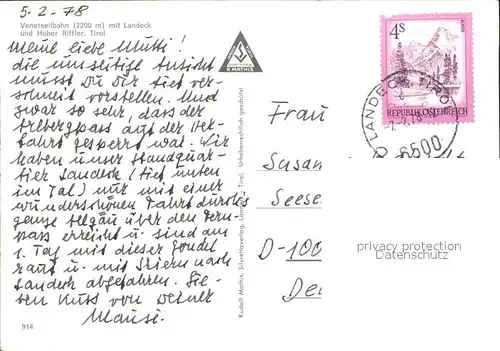 5-2-78
Venetseilbahn (2200 m) mit Landeck
und Hoher Riffler, Tirol
Meine liebe Mutti!
die umseitige Ansicht
musst Du Dir tief ver-
schneit vorstellen. Und
zwar so sehr, dass der
Arlbergpass auf der Her-
fahrt gesperrt war. Wir
haben unser Standquar-
tier Landeck (tief unten
im Tal) nur mit einer
wunderschönen Fahrt durchs
ganze Allgäu über den Fern-
pass erreicht u. sind am
1. Tag mit dieser Gondel
rauf u. mit Skiern nach
Landeck abgefahren. Lie-
ben Kuss von Deiner
Mausi.
914
R. MATHIS
Rudolf Mathis, Silvrettaverlag, Landeck – Tirol. Urheberrechtlich geschützt
4S
REPUBLIK ÖSTERREICH
LANDECK, TIROL
6500
Frau
Susan
Seese
D-100
privacy protection
Datenschutz